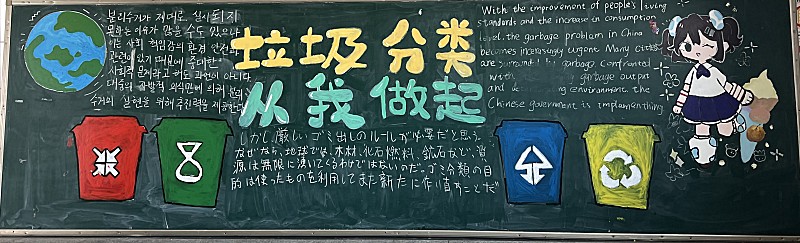 분리수거가 제대로 실시되지
못하는 이유가 많을 수도 있으나
이는 사회 책임감의 환경 안전과
관련이 있기 때문에 중대한
사회적 문제라고 해도 과언이 아니다.
대중의 자발적 의식만에 의해
수거의 실현을 위해 추진력을 제공한다
垃圾 分类
从我做起
しかし厳しいゴミ出しのルールが必要だと思う。
なぜなら、地球では、木材、化石燃料、鉱石など、資
源は無限に湧いてくるわけではないのだ。ゴミ分類の目
的は使ったものを利用してまた新たに作り直すことだ
With the improvement of people's living
standards and the increase in consumption
level, the garbage problem in China
becomes increasingly urgent Many cities
are surrounded by garbage Confronted
with garbage output
and environment. the
Chinese government is implamenthing